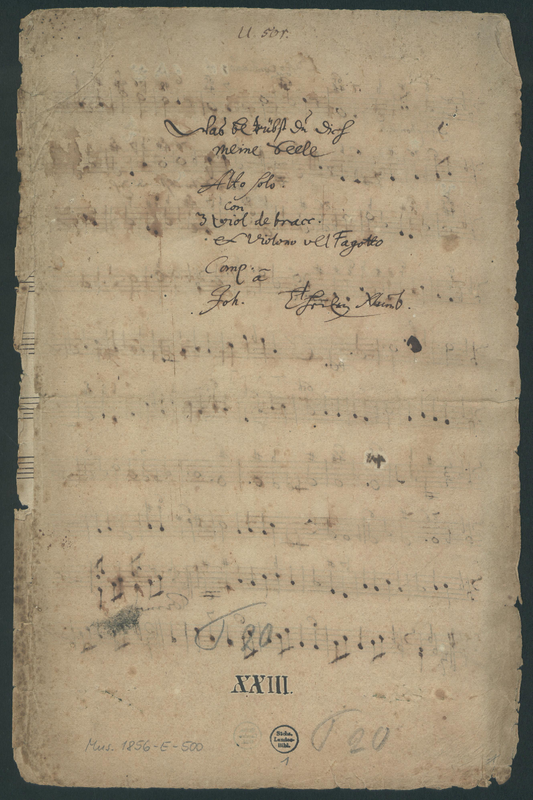 Was betrübst du dich
meine Seele
Alto solo.
con
3 Viol de bracc.
& Violono vel Fagotto
Comp. â
Joh.
T 20
XXIII.
Sächs.
Landes-
Bibl.
T 20
Mus. 1856-E-500
1